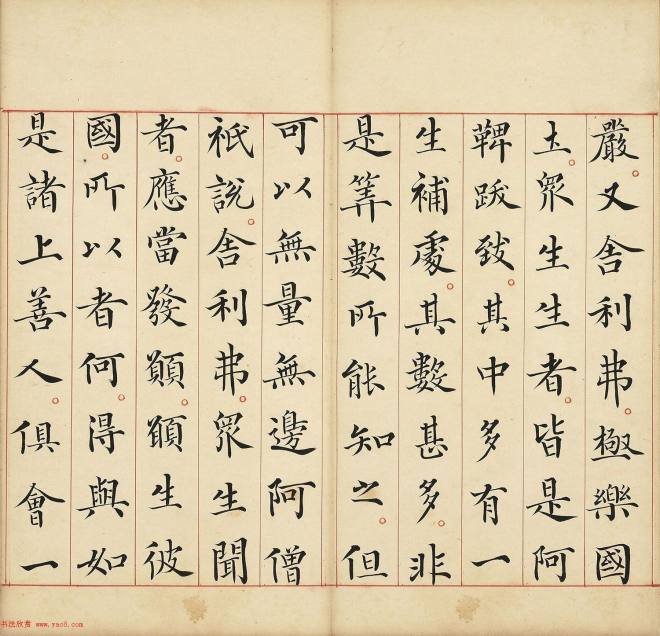 嚴。又舍利弗。極樂國
土。眾生生者。皆是阿
鞞跋致。其中多有一
生補處。其數甚多。非
是筭數所能知之。但
可以無量無邊阿僧
祇說。舍利弗。眾生聞
者。應當發願。願生彼
國。所以者何。得與如
是諸上善人。俱會一
书法欣赏 www.yac8.com